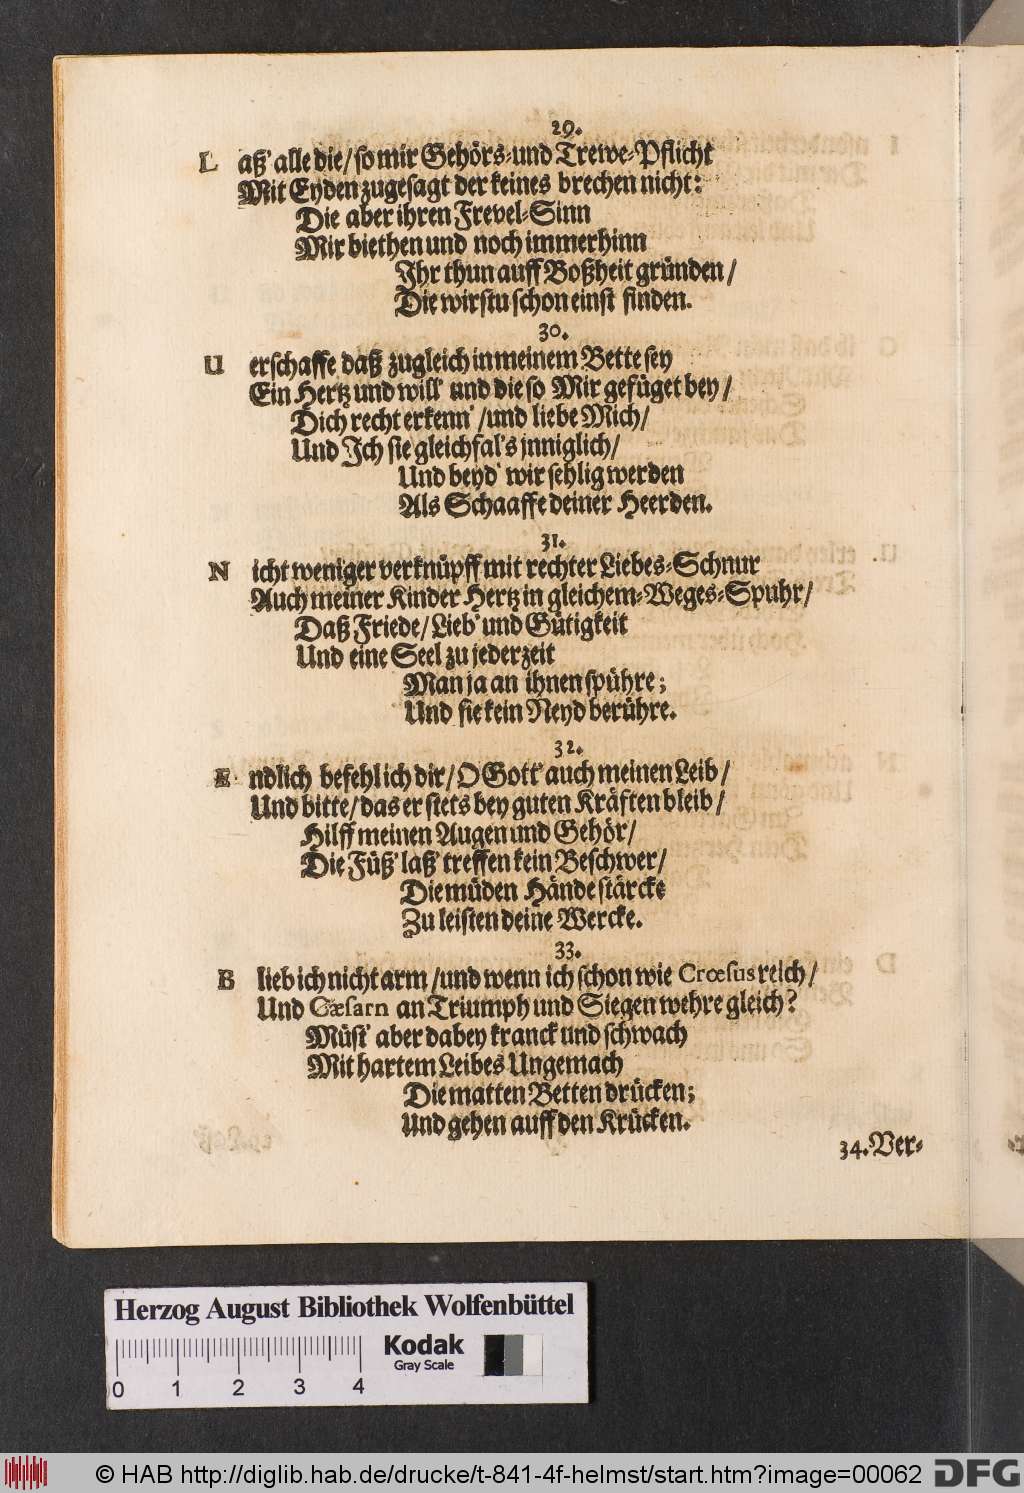 29.
L aß' alle die/ so mir Gehörs- und Trewe-Pflicht
Mit Eyden zugesagt der keines brechen nicht:
Die aber ihren Frevel-Sinn
Mir biethen und noch immerhinn
Ihr thun auff Boßheit gründen/
Die wirstu schon einst finden.
30.
U erschaffe daß zugleich in meinem Bette sey
Ein Hertz und will' und die so Mir gefüget bey/
Dich recht erkenn'/und liebe Mich/
Und Ich sie gleichfal's jnniglich/
Und beyd' wir sehlig werden
Als Schaaffe deiner Heerden.
31.
N icht weniger verknüpff mit rechter Liebes-Schnur
Auch meiner Kinder Hertz in gleichem-Weges-Spuhr/
Daß Friede/ Lieb' und Gütigkeit
Und eine Seel zu jederzeit
Man ja an ihnen spühre;
Und sie kein Neyd berühre.
32.
E ndlich befehl ich dir/ O Gott' auch meinen Leib/
Und bitte/ das er stets bey guten Kräften bleib/
Hilff meinen Augen und Gehör/
Die Füß' laß' treffen kein Beschwer/
Die müden Hände stärcke
Zu leisten deine Wercke.
33.
B lieb ich nicht arm/und wenn ich schon wie Crœsus reich/
Und Cæsarn an Triumph und Siegen wehre gleich?
Müst' aber dabey kranck und schwach
Mit hartem Leibes Ungemach
Die matten Betten drücken;
Und gehen auff den Krücken.
34. Ver-
Herzog August Bibliothek Wolfenbüttel
Kodak
Gray Scale
0 1 2 3 4
© HAB http://diglib.hab.de/drucke/t-841-4f-helmst/start.htm?image=00062
DFG